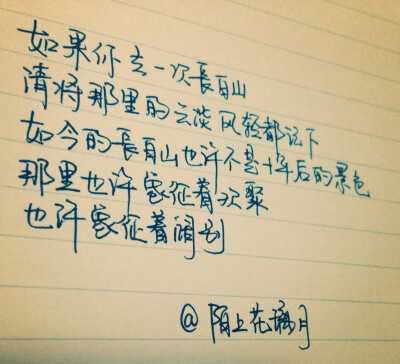 如果你去一次長白山
請将那里的云淡风轻都记下
如今的長白山也许不是十年后的景色
那里也许象征着欢聚
也许象征着阔别
@陌上花瑶月